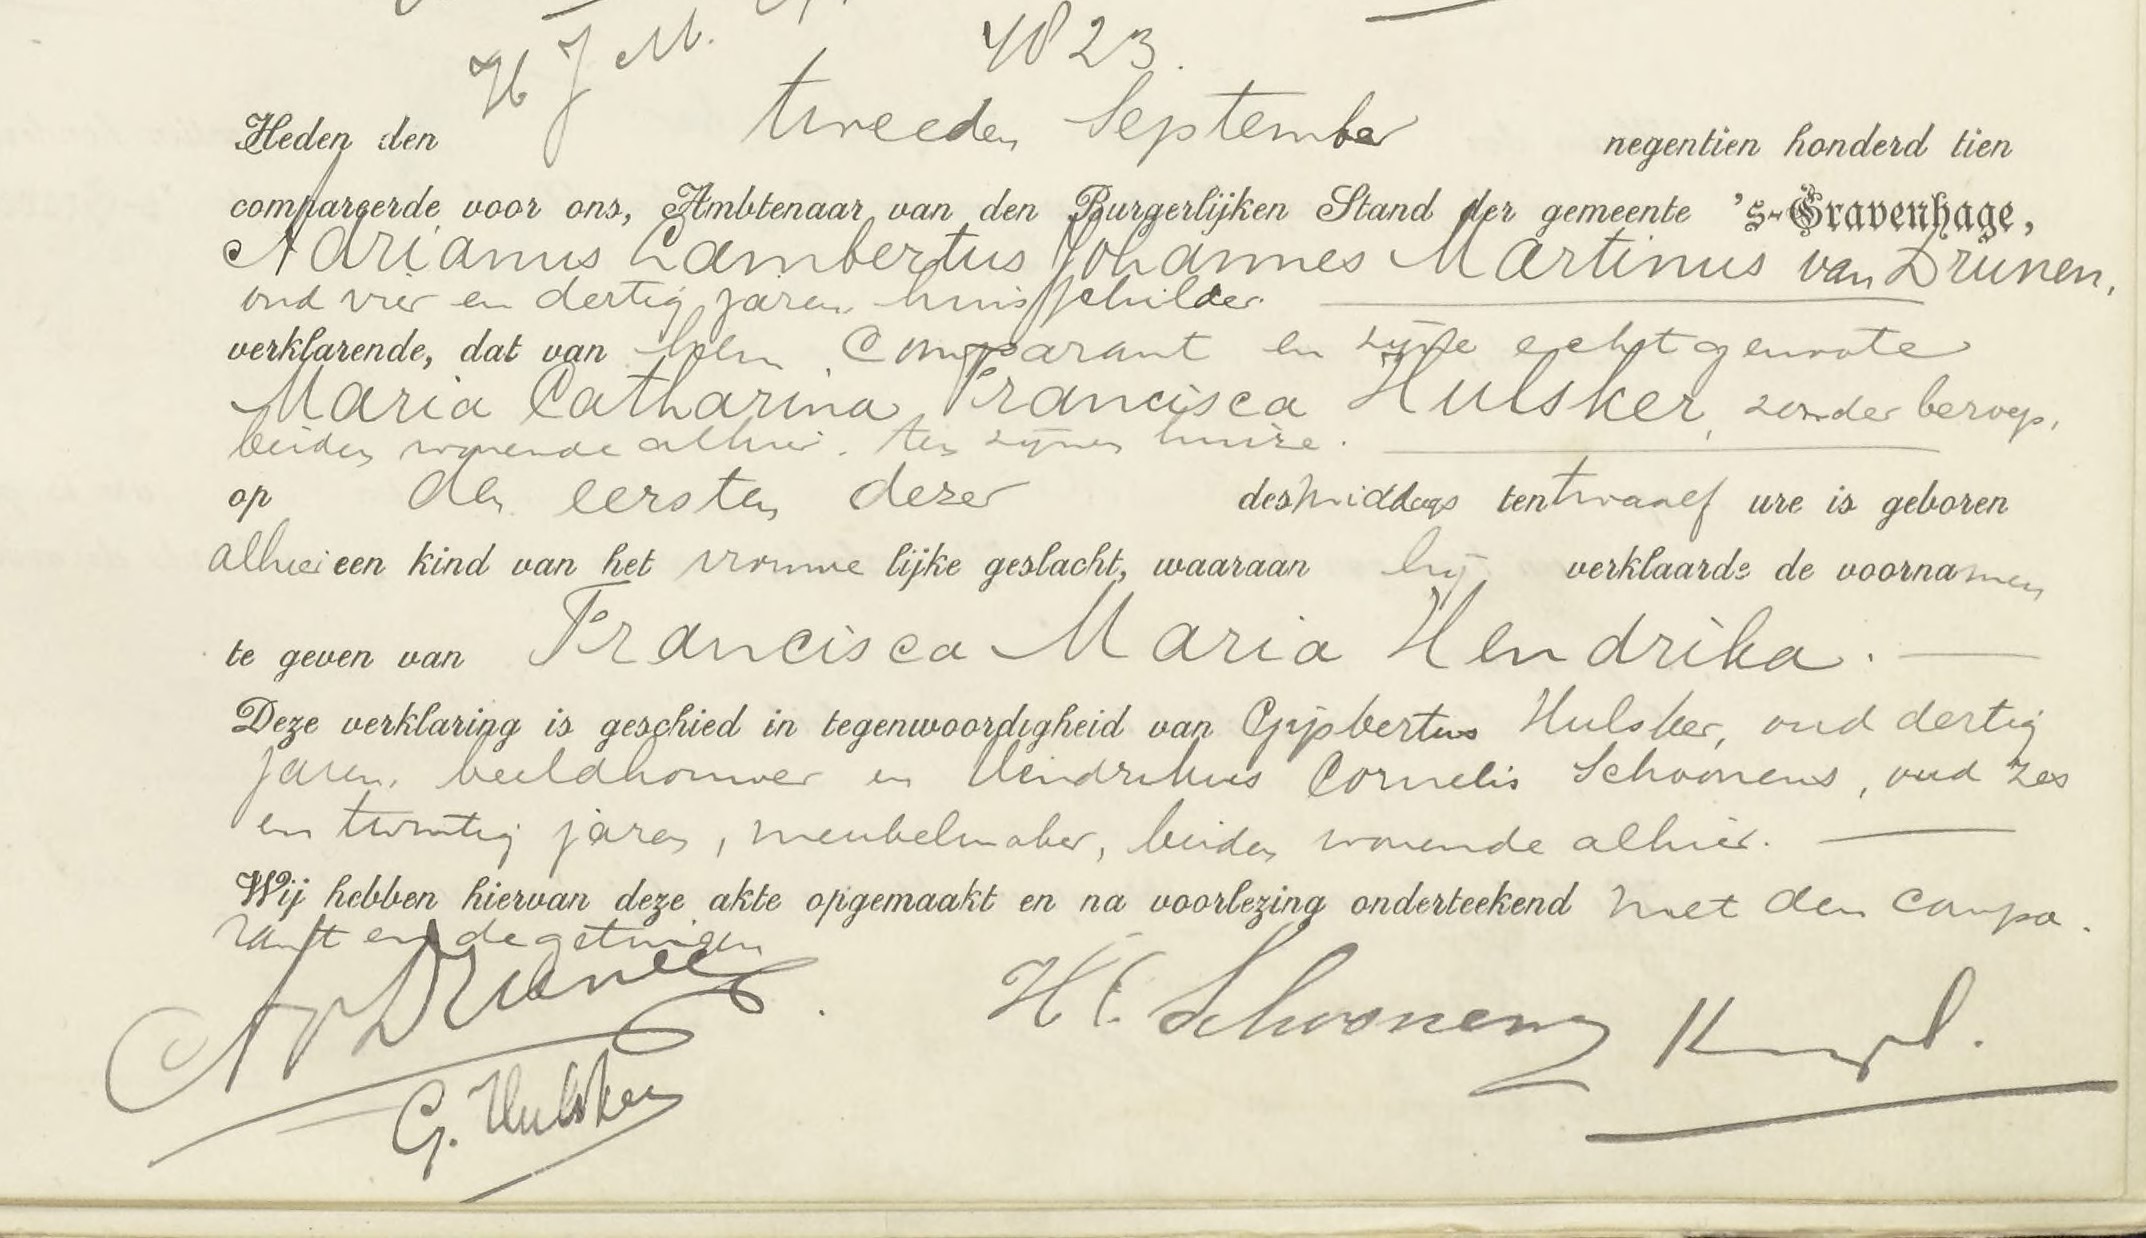 H J M. 4823.
Heden den tweeden September negentien honderd tien
compareerde voor ons, Ambtenaar van den Burgerlijken Stand der gemeente 's-Gravenhage,
Adrianus Lambertus Johannes Martinus van Drunen,
oud vier en dertig jaren, huisschilder
verklarende, dat van hem, Comparant en zijne echtgenoote
Maria Catharina Francisca Hulsker, zonder beroep,
beiden wonende alhier. ten zijnen huize.
op den eersten dezer des middags ten twaalf ure is geboren
alhier een kind van het vrouwelijke geslacht, waaraan hij verklaarde de voornamen
te geven van Francisca Maria Hendrika.
Deze verklaring is geschied in tegenwoordigheid van Gijsbertus Hulsker, oud dertig
jaren, beeldhouwer en Hendrikus Cornelis Schoonens, oud zes
en twintig jaren, meubelmaker, beiden wonende alhier.
Wij hebben hiervan deze akte opgemaakt en na voorlezing onderteekend met den compa-
rant en de getuigen
A v Drunen H C Schoonens
G. Hulsker